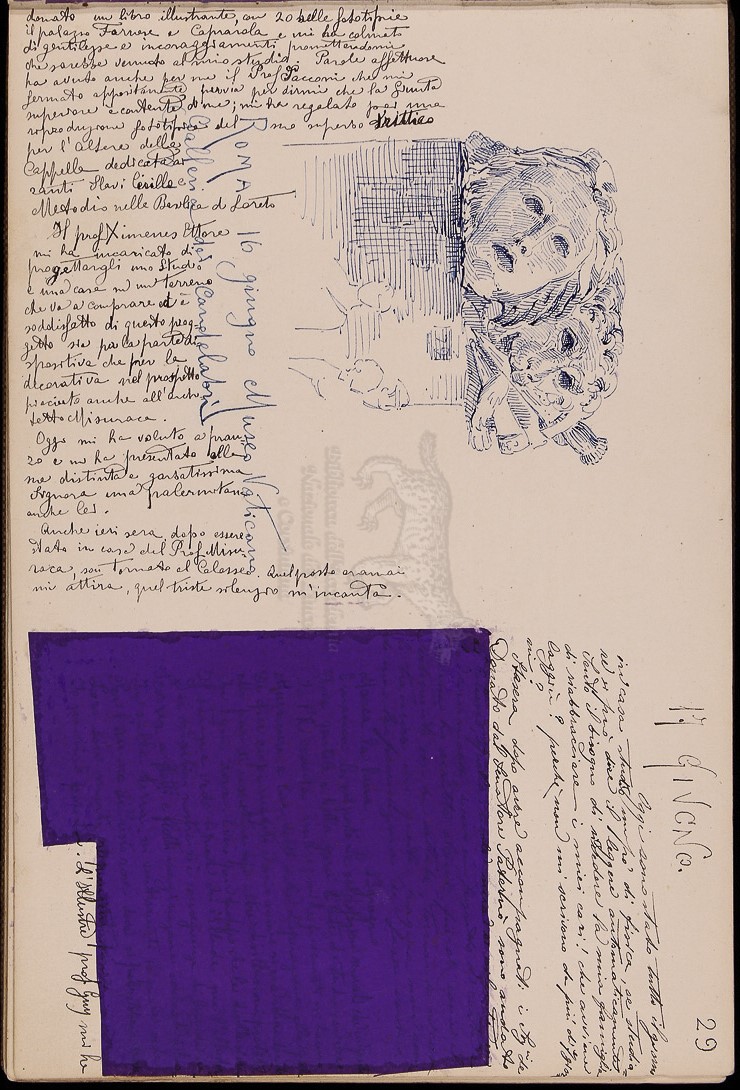 donato un libro illustrante con 20 belle fototipie
il palazzo Farnese e Caprarola e mi ha colmato
di gentilezze e incoraggiamenti promettendomi
che sarebbe venuto al mio studio. Parole affettuose
ha avuto anche per me il Prof Jacconi che mi
fermato appositamente per dirmi che la Giunta
superiore è contenta di me; mi ha regalato poi una
riproduzione fototipica del suo superbo trittico
per l'Altare della
Cappella dedicata ai
santi Slavi Cirillo e
Metodio nella Basilica di Loreto
Il prof Ximenes Ettore
mi ha incaricato di
progettargli uno studio
e una casa su un terreno
che va a comprare ed è
soddisfatto di questo prog
getto sia per la parte di
spositiva che per la
decorativa nel prospetto
piaciuto anche all'archi
tetto Misuraca.
Oggi mi ha voluto a pran
zo e mi ha presentato alla
sua distinta e garbatissima
Signora una palermitana
anche lei.
Anche ieri sera, dopo essere
stato in casa del Prof. Misu
raca, son tornato al Colosseo. Quel posto oramai
mi attira, quel triste silenzio m'incanta.
ROMA 16 giugno Museo Vaticano
Galleria dei Candelabri
29
17 GIUGNO.
Oggi sono stato tutto il giorno
in casa
di riabbracciare i miei cari! che avviene
laggiù? perchè non mi scrivono da più di
mi?
Stasera dopo aver accompagnato i
L'illustre prof Guy mi ha